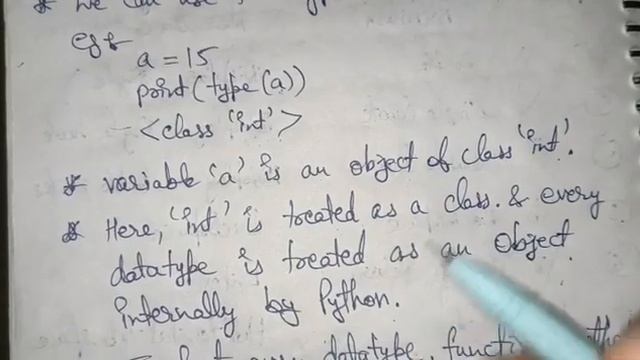 * We can use
eg:
a = 15
print(type(a))
<class 'int'>
* variable 'a' is an object of class 'int'.
* Here, 'int' is treated as a class. & every
datatype is treated as an object
internally by Python.
datatype function